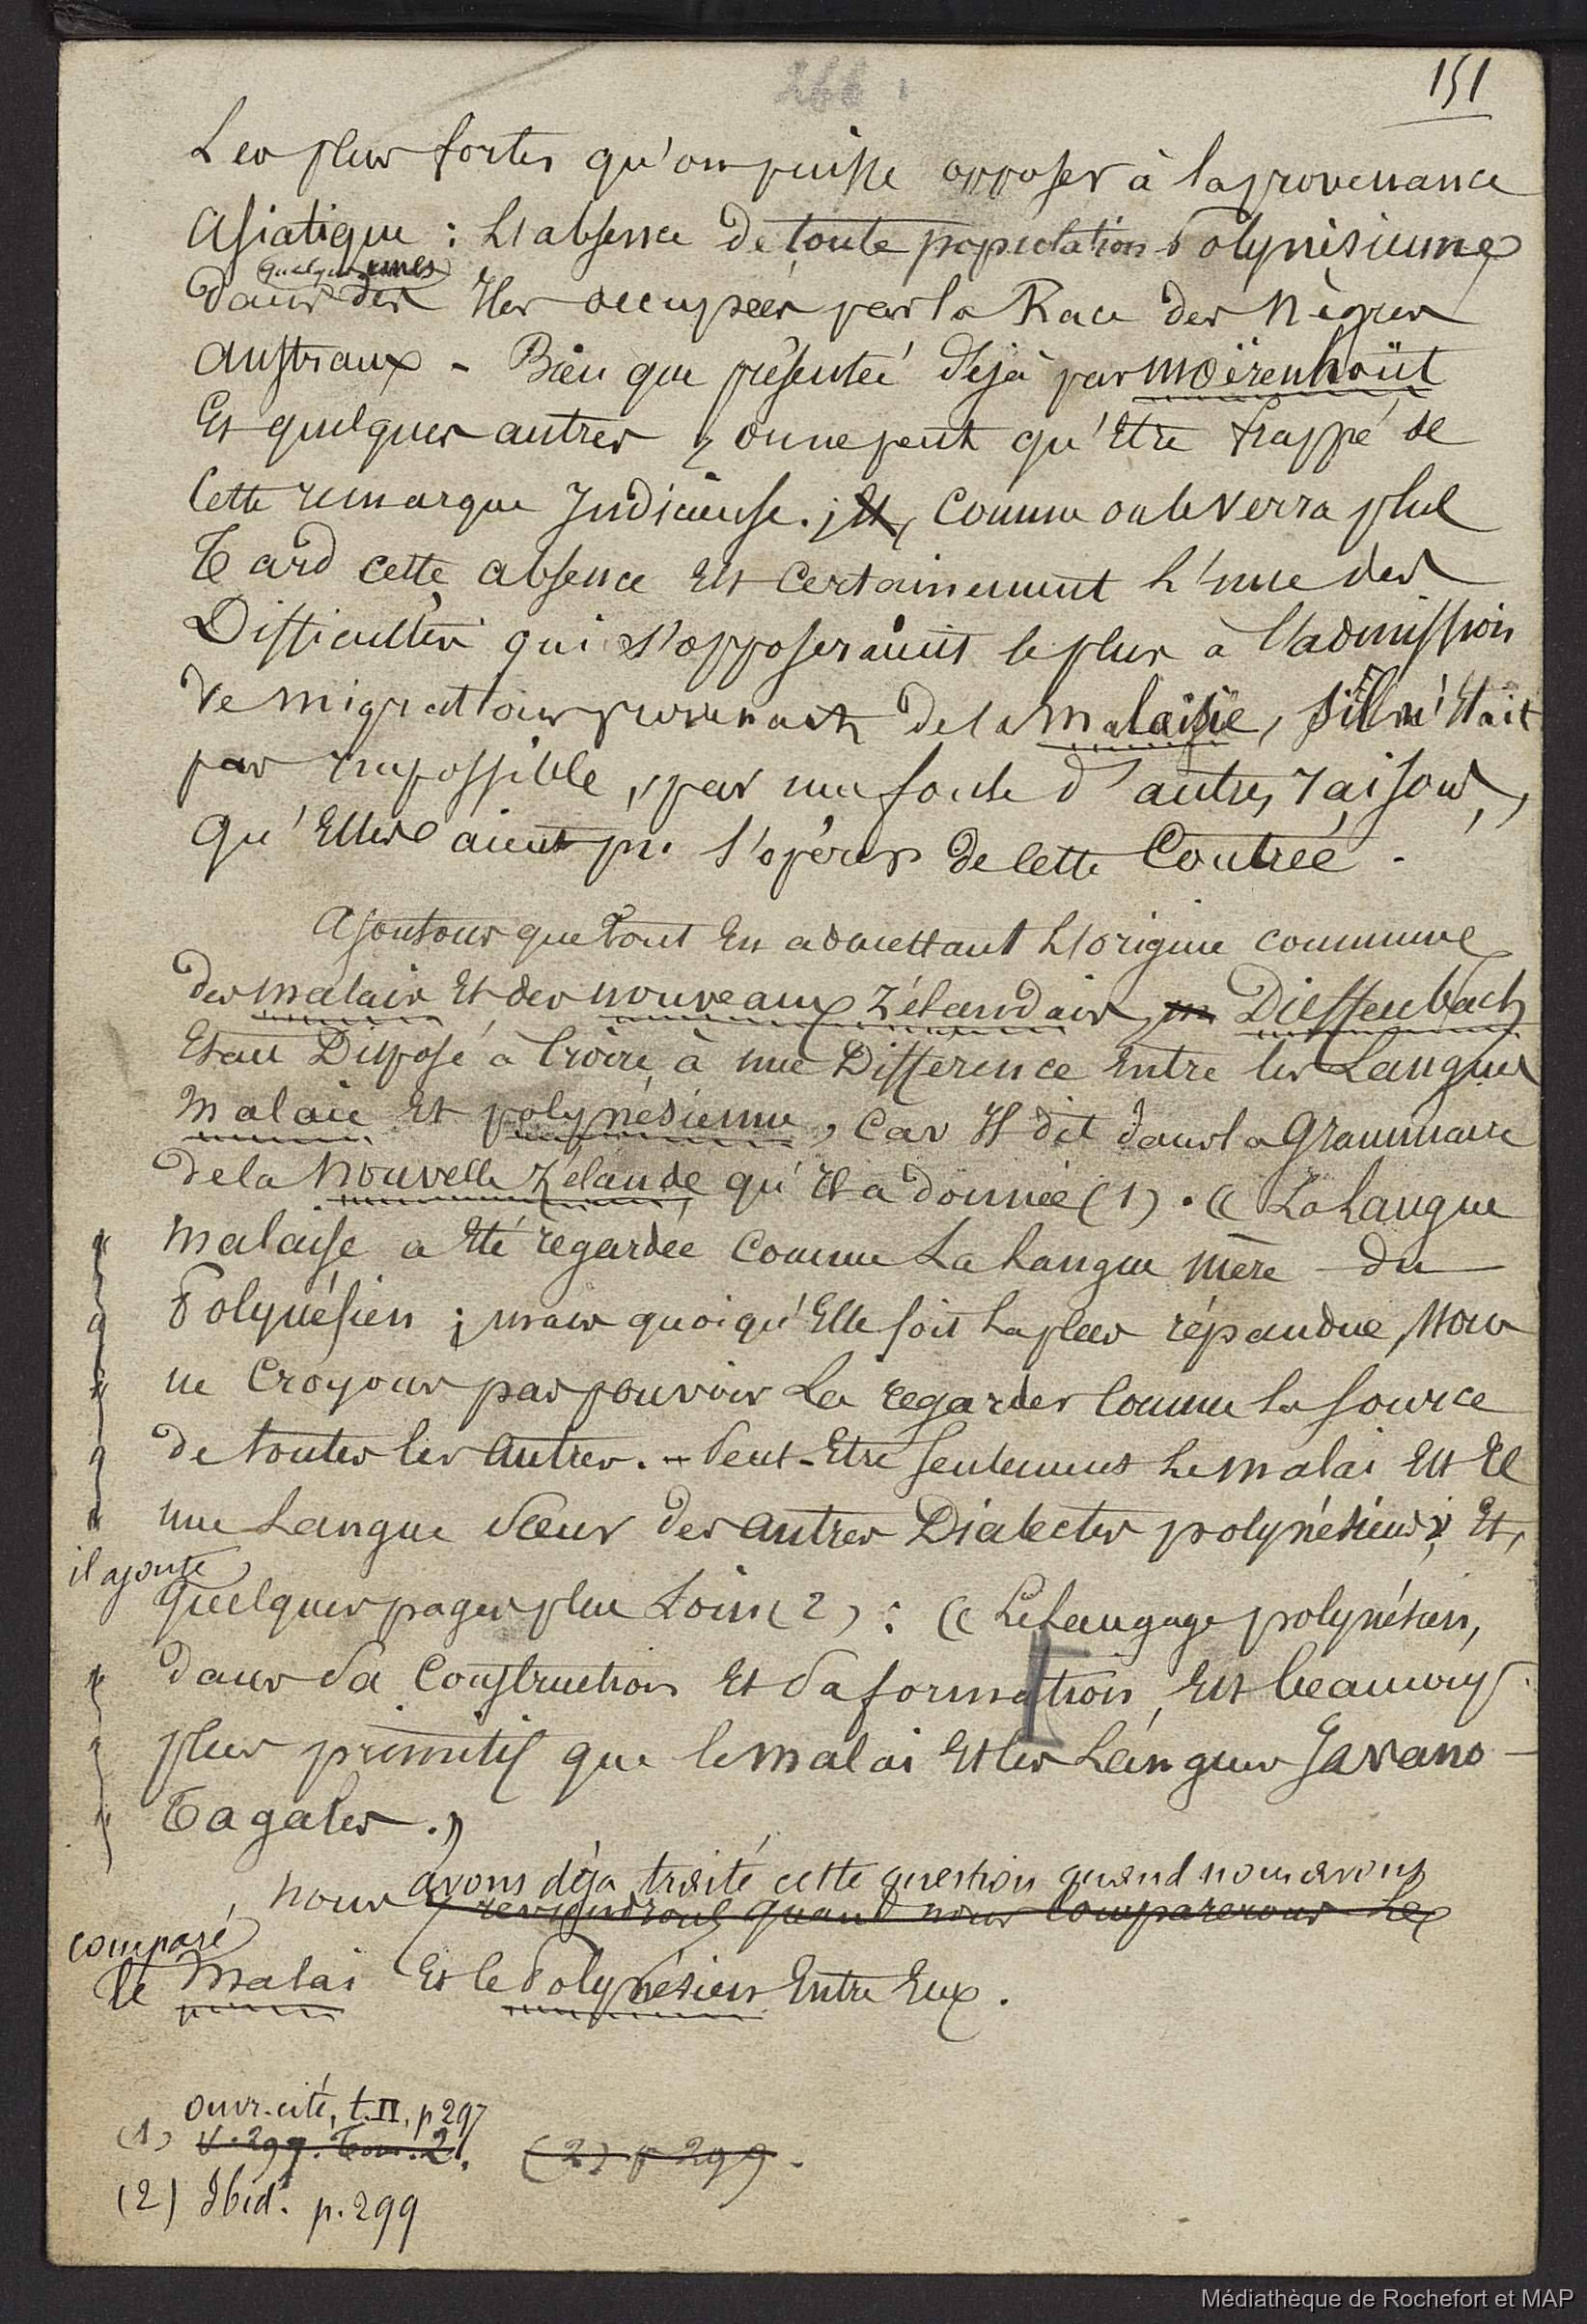 266
151
Les plus fortes qu'on puisse opposer à la provenance
Asiatique : L'absence de toute population Polynésienne
quelques unes
dans des Iles occupées par la Race des Nègres
Austraux - Bien que présentée déjà par Moërenhoüt
Et quelques autres, on ne peut qu'Etre frappé de
Cette remarque Judicieuse ; Et, Comme on le Verra plus
Tard cette absence Est Certainement L'une des
Difficultés qui S'opposeraient le plus à L'admission
de migrations provenant de la Malaisie, s'il n'était
pas Impossible, par une foule d'autres raisons,
qu'Elles aient pu s'opérer de Cette Contrée.
Ajoutons que tout En admettant L'origine commune
des Malais Et des nouveaux Zélandais, Dieffenbach
Etait Disposé à Croire à une Différence Entre les Langues
Malaie Et polynésienne, Car Il dit dans la Grammaire
de la Nouvelle Zélande qu'Il a donnée (1). « La Langue
Malaise a Eté regardée Comme La Langue Mère du
Polynésien ; mais quoiqu'Elle soit La plus répandue, Nous
ne Croyons pas pouvoir La regarder Comme La Source
de toutes les Autres. - Peut-Etre Seulement Le Malai Est Il
une Langue Sœur des Autres Dialectes polynésiens ; Et,
il ajoute
quelques pages plus Loin (2) : « Le Langage polynésien,
dans Sa Construction Et Sa formation, Est beaucoup
plus primitif que le Malai Et les Langues Javano-
Tagales. »
avons déja traité cette question quand nous avons
Nous y reviendrons quand nous Comparerons Les
comparé
le Malai Et le Polynésien Entre Eux.
Ouvr. cité, t. II, p 297
(1) V. 297. Tom. 2. (2) p 299.
(2) Ibid. p. 299
Médiathèque de Rochefort et MAP